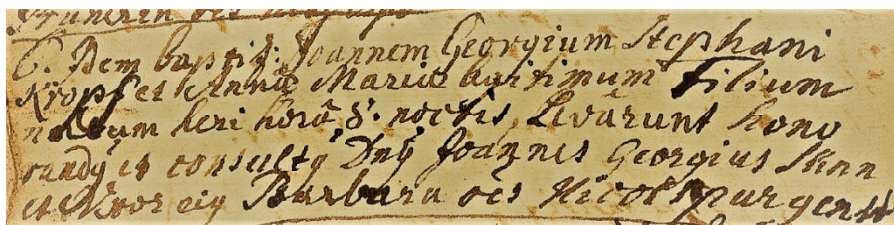 6. Idem baptis: Joannem Georgium Stephani
Kropf et Annæ Mariæ legitimum Filium
natum heri horâ 8. noctis, Levârunt hono
randq et consultq Dnq Joannes Georgius
et Uxor eiq Barbara oēs Nicolspurgens